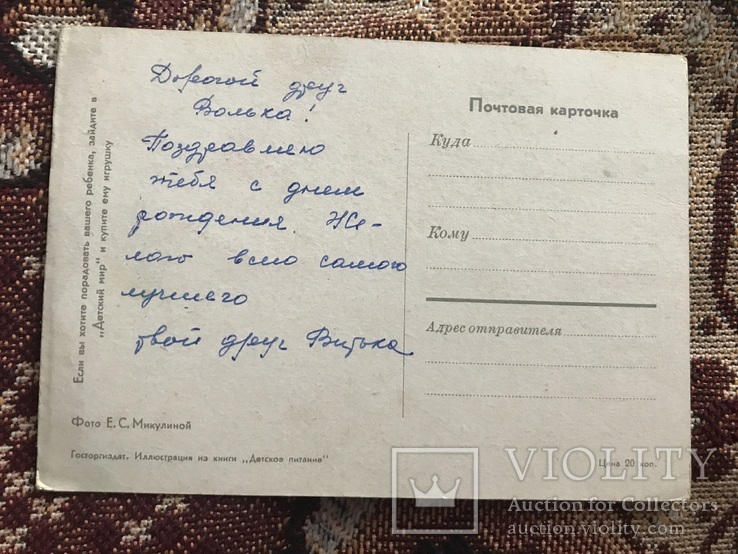 Дорогой друг
Волька!
Поздравляю
тебя с днем
рождения. Же-
лаю всио самого
лучшего
твой друг Витька
Если вы хотите порадовать вашего ребенка, зайдите в
„Детский мир" и купите ему игрушку
Фото Е. С. Микулиной
Госторгиздат. Иллюстрация из книги „Детское питание"
Почтовая карточка
Куда
Кому
Адрес отправителя
Цена 20 коп.
VIOLITY
Auction for Collectors
auction.violity.com